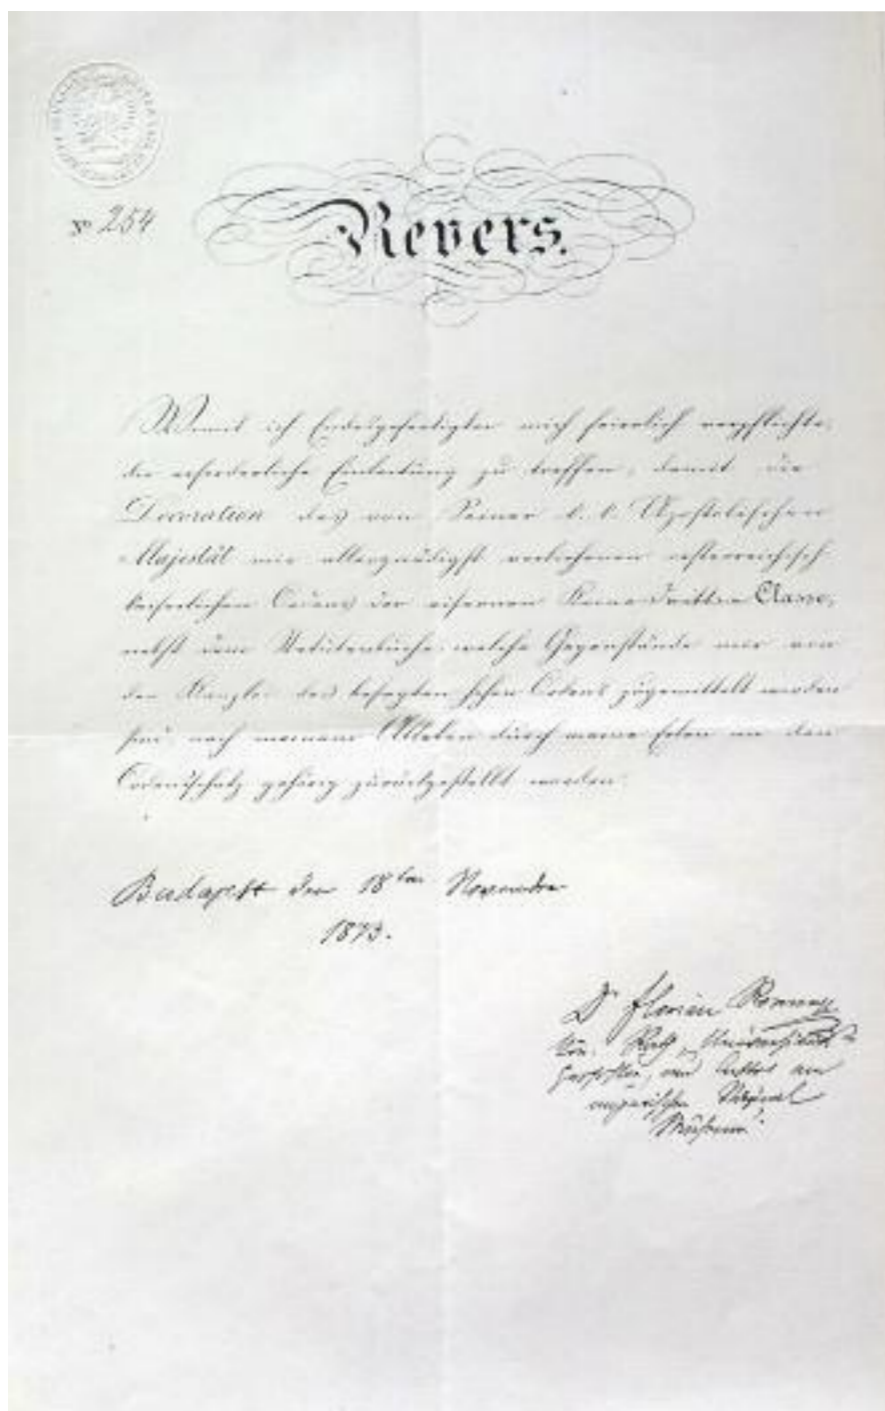 No 254
Revers.
Womit ich Endesgefertigter mich feierlich verpflichte,
die erforderliche Einleitung zu treffen, damit die
Decoration des von Seiner k. k. Apostolischen
Majestät mir allergnädigst verliehenen österreichisch
kaiserlichen Ordens der eisernen Krone dritter Classe,
nebst dem Statutenbuche, welche Gegenstände mir von
der Kanzlei des besagten hohen Ordens zugemittelt worden
sind, nach meinem Ableben durch meine Erben an den
Ordensschatz gehörig zurückgestellt werden.
Budapest den 18ten November
1873.
Dr Florian Romer
kön. Rath, Universitäts
Professor, und Custos am
ungarischen National
Museum.